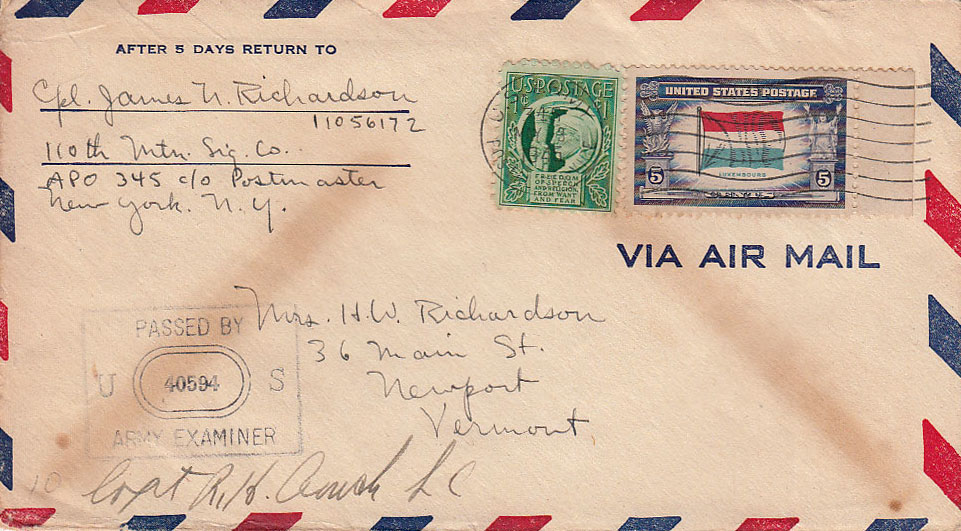 AFTER 5 DAYS RETURN TO
Cpl. James N. Richardson
11056172
110th Mtn. Sig. Co.
APO 345 c/o Postmaster
New York. N.Y.
U.S. POSTAGE
1¢
FREEDOM
OF SPEECH
AND RELIGION,
FROM WANT
AND FEAR
UNITED STATES POSTAGE
LUXEMBOURG
5 5
VIA AIR MAIL
Mrs. H.W. Richardson
36 Main St.
Newport
Vermont
PASSED BY
U 40594 S
ARMY EXAMINER
Capt R.H.
10